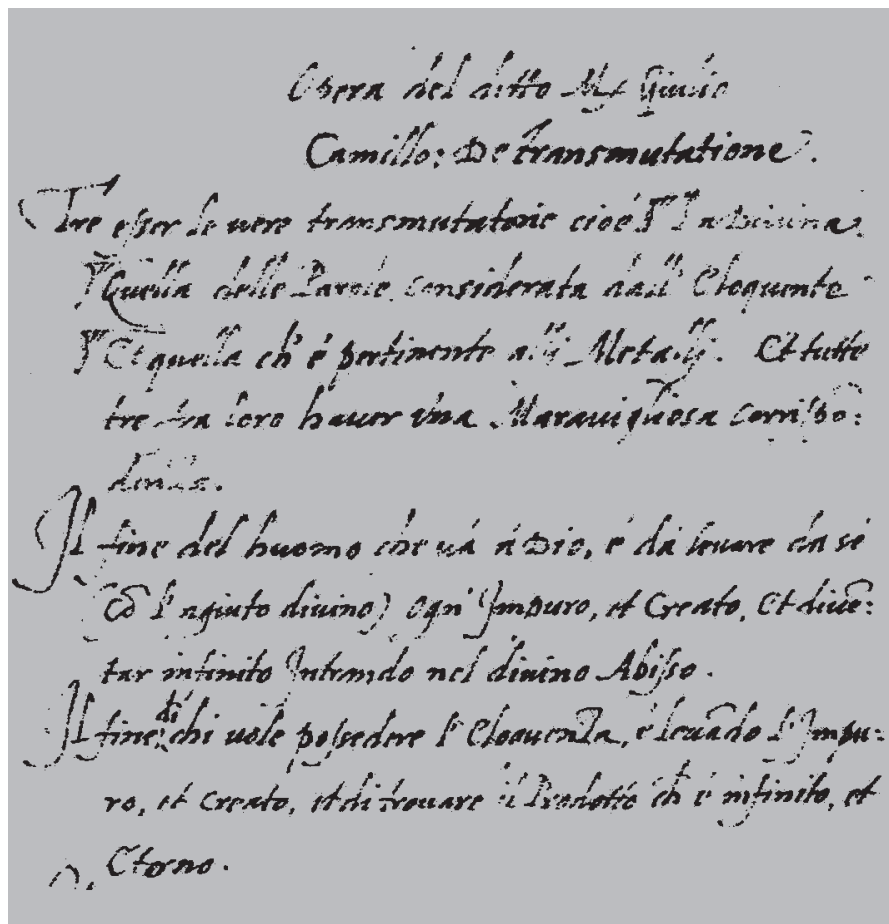 Opera del ditto Mr Giulio
Camillo: De transmutatione.
Tre esser le vere transmutatorie cioè La Divina.
Quella delle Parole considerata dall' Eloquente
Et quella ch' é pertinente alli Metalli. Et tutte
tre tra loro haver una Maravigliosa corrispō:
denza.
Il fine del huomo che uá á Dio, é da levare da sé
(Cō l' agiuto divino) ogn' Impuro, et Creato, Et divē:
tar infinito Intrando nel divino Abisso.
Il fine di chi uole possedere l' Eloquenza, é levādo l' Impu:
ro, et Creato, et di trovare il Prodotto ch' é infinito, et
Eterno.